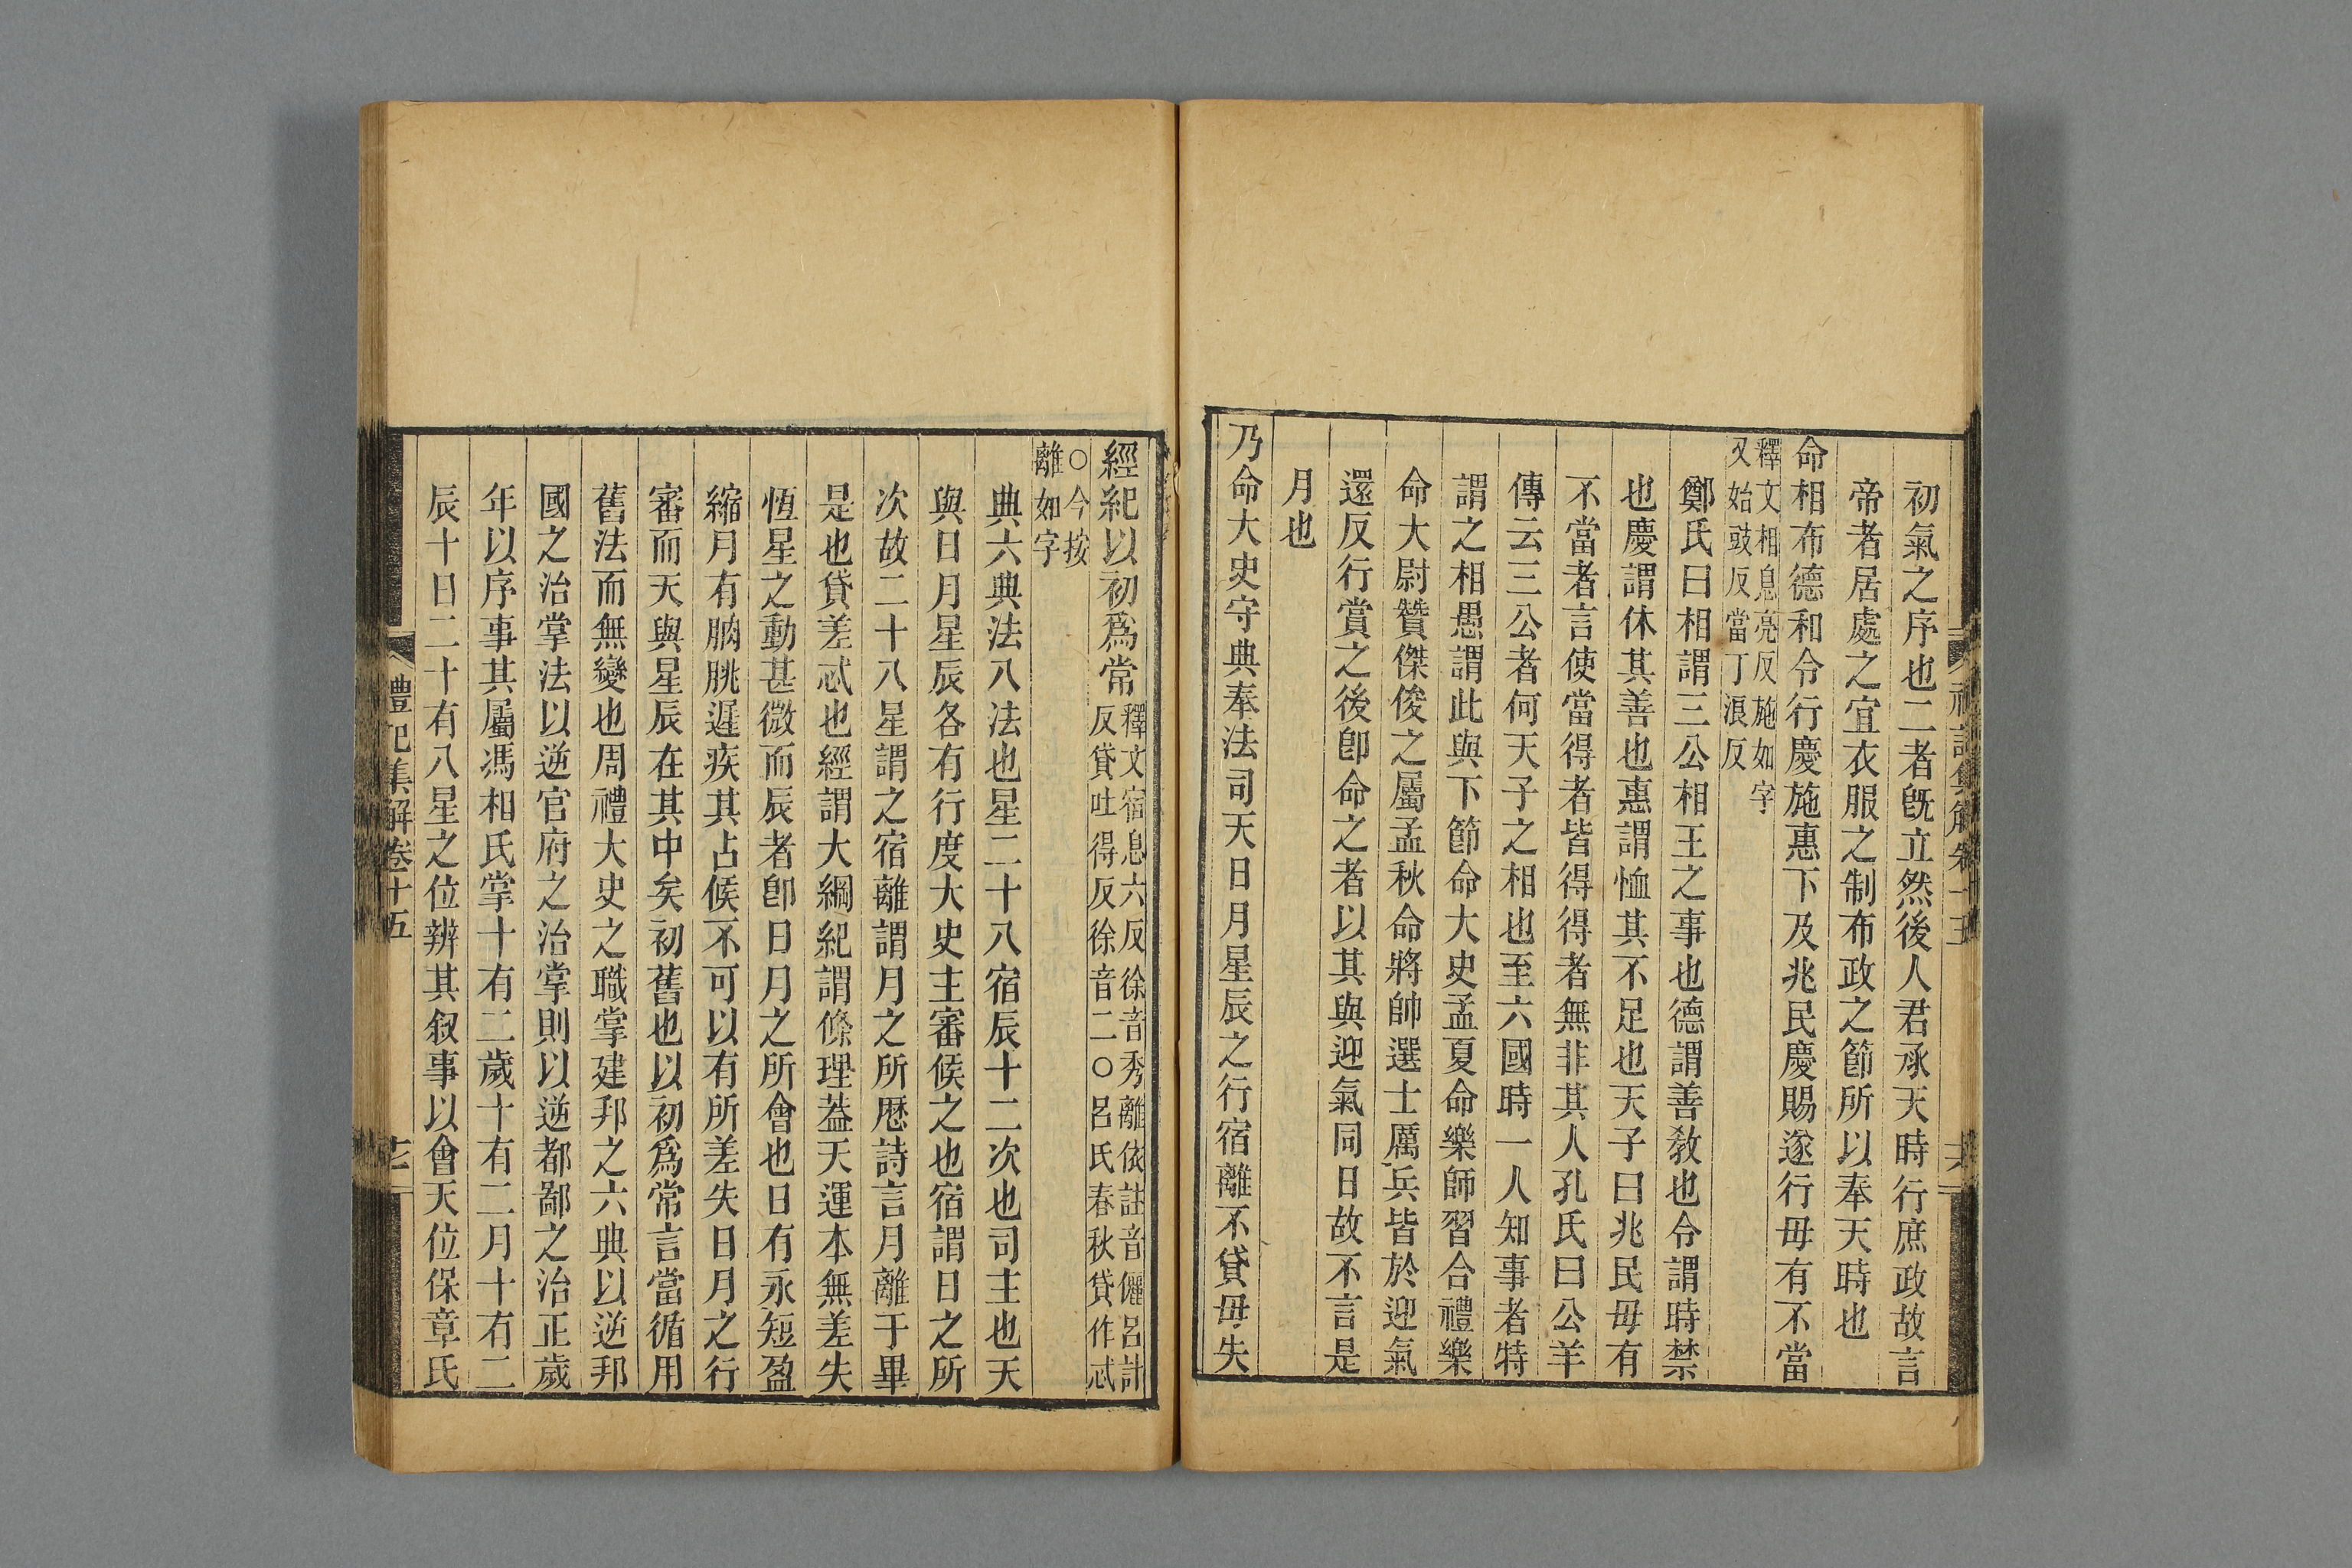 初氣之序也二者旣立然後人君承天時行庶政故言
帝者居處之宜衣服之制布政之節所以奉天時也
命相布德和令行慶施惠下及兆民慶賜遂行毋有不當
釋文相息亮反施如字
又始豉反當丁浪反
鄭氏曰相謂三公相王之事也德謂善敎也令謂時禁
也慶謂休其善也惠謂恤其不足也天子曰兆民毋有
不當者言使當得者皆得得者無非其人孔氏曰公羊
傳云三公者何天子之相也至六國時一人知事者特
謂之相愚謂此與下節命大史孟夏命樂師習合禮樂
命大尉贊傑俊之屬孟秋命將帥選士厲兵皆於迎氣
還反行賞之後卽命之者以其與迎氣同日故不言是
月也
乃命大史守典奉法司天日月星辰之行宿離不貸毋失
禮記集解卷十五
經紀以初爲常
釋文宿息六反徐音秀離依註音儷呂計
反貸吐得反徐音二○呂氏春秋貸作忒
○今按
離如字
典六典法八法也星二十八宿辰十二次也司主也天
與日月星辰各有行度大史主審候之也宿謂日之所
次故二十八星謂之宿離謂月之所歷詩言月離于畢
是也貸差忒也經謂大綱紀謂條理蓋天運本無差失
恆星之動甚微而辰者卽日月之所會也日有永短盈
縮月有朒朓遲疾其占候不可以有所差失日月之行
審而天與星辰在其中矣初舊也以初爲常言當循用
舊法而無變也周禮大史之職掌建邦之六典以逆邦
國之治掌法以逆官府之治掌則以逆都鄙之治正歲
年以序事其屬馮相氏掌十有二歲十有二月十有二
辰十日二十有八星之位辨其叙事以會天位保章氏
禮記集解卷十五